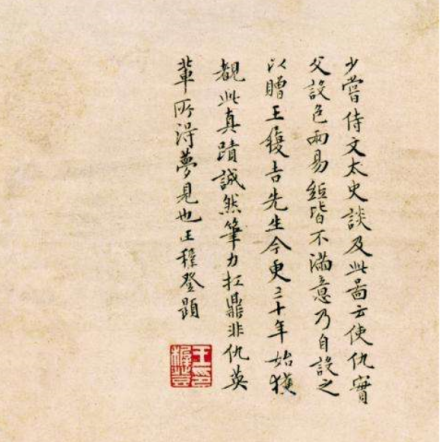 少嘗侍文太史談及此圖云使仇實
父設色兩易紙皆不滿意乃自設之
以贈王履吉先生今更三十年始獲
觀此真蹟誠然筆力扛鼎非仇英
輩所得夢見也王穉登題
王印穉登